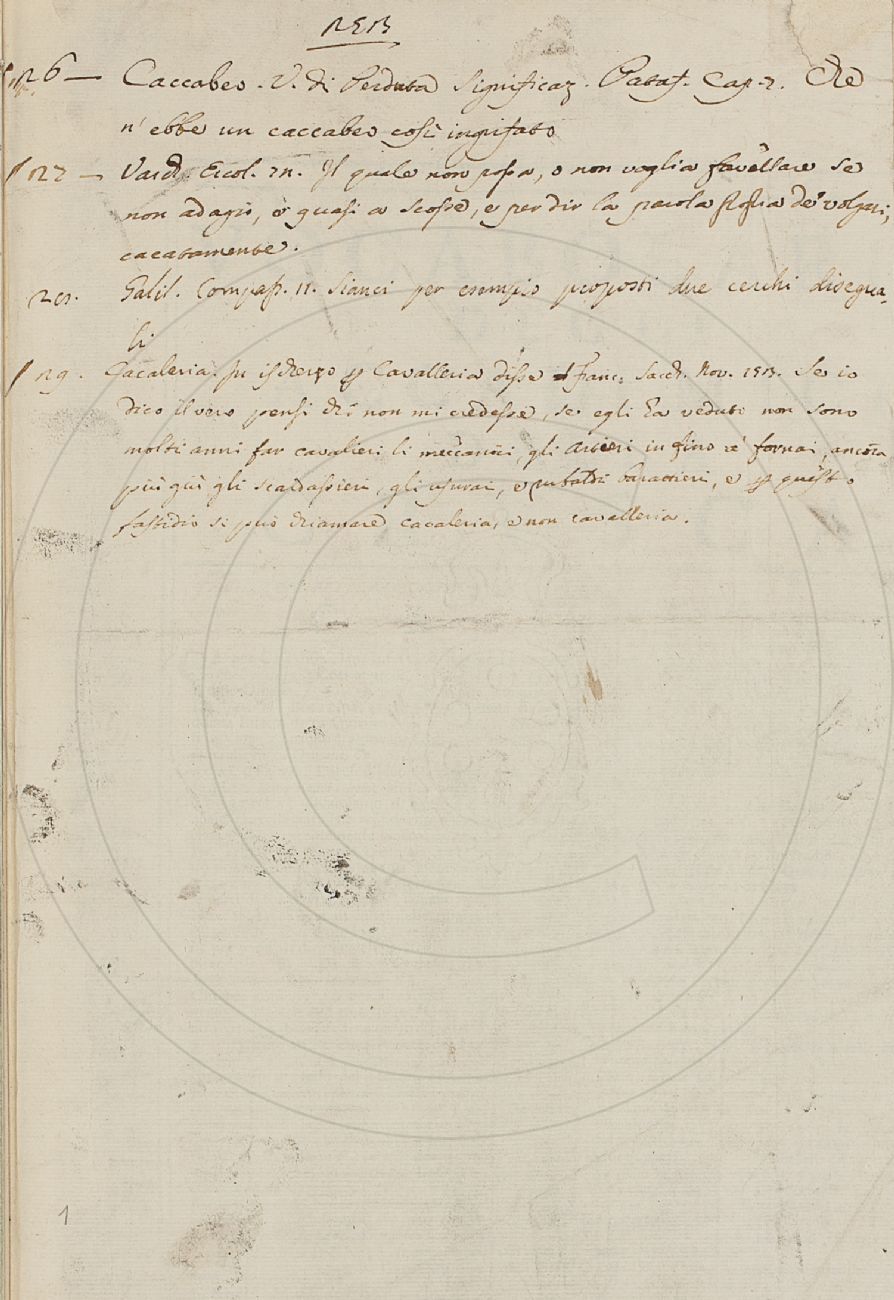 126 — Caccabeo. V. di Perduta Significaz. Pataf. Cap. 2. Che
n'ebbe un caccabeo così ingrifato
127 — Varch. Ercol. 71. Il quale non possa, o non voglia favellare se
non adagio, e quasi a scosse, e per dir la parola stessa de' volgari,
cacatamente.
Galil. Compass. 11. Sianci per esempio proposti due cerchi disegua-
li
129. Cacaleria. In ischerzo p Cavalleria disse Franc. Sacch. Nov. 153. Se io
dico il vero pensi chi non mi credesse, se egli ha veduto non sono
molti anni far cavalieri li meccanici, gli artieri in fino a' fornai, ancora
più giù gli scardassieri, gli usurai, e rubaldi barattieri, e p questo
fastidio si può chiamare cacaleria, e non cavalleria.
1